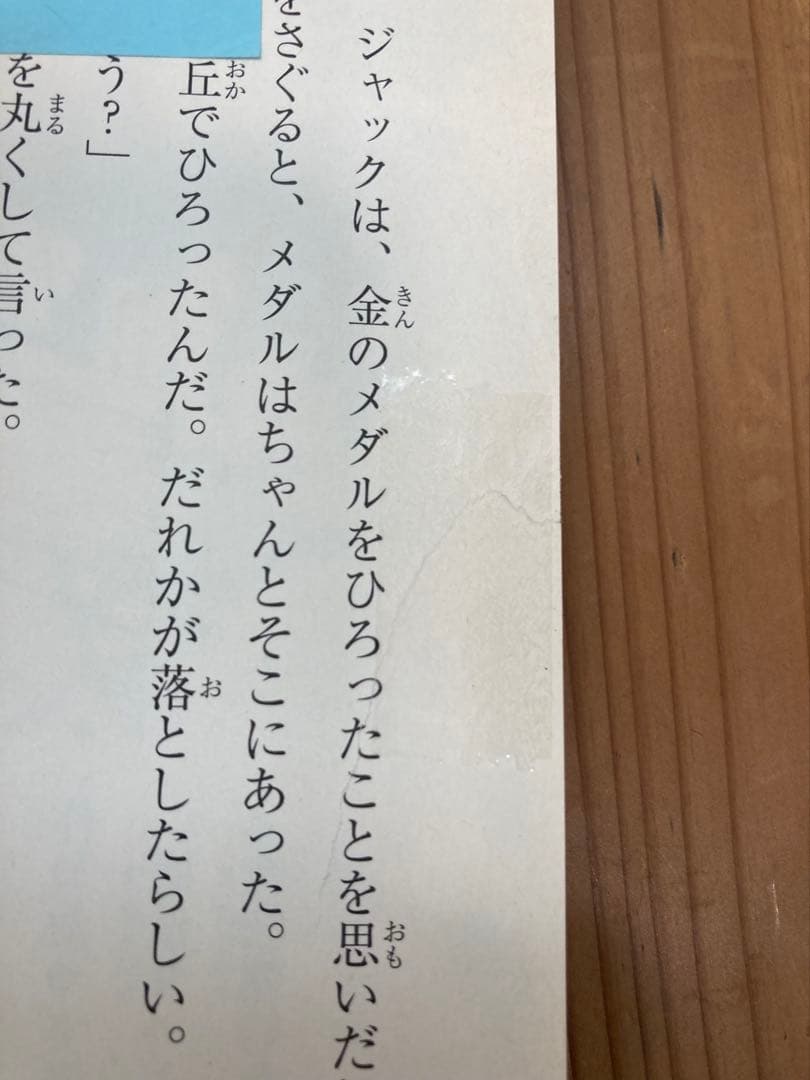 ジャックは、金のメダルをひろったことを思いだ
をさぐると、メダルはちゃんとそこにあった。
丘でひろったんだ。だれかが落としたらしい。
う?」
を丸くして言った。